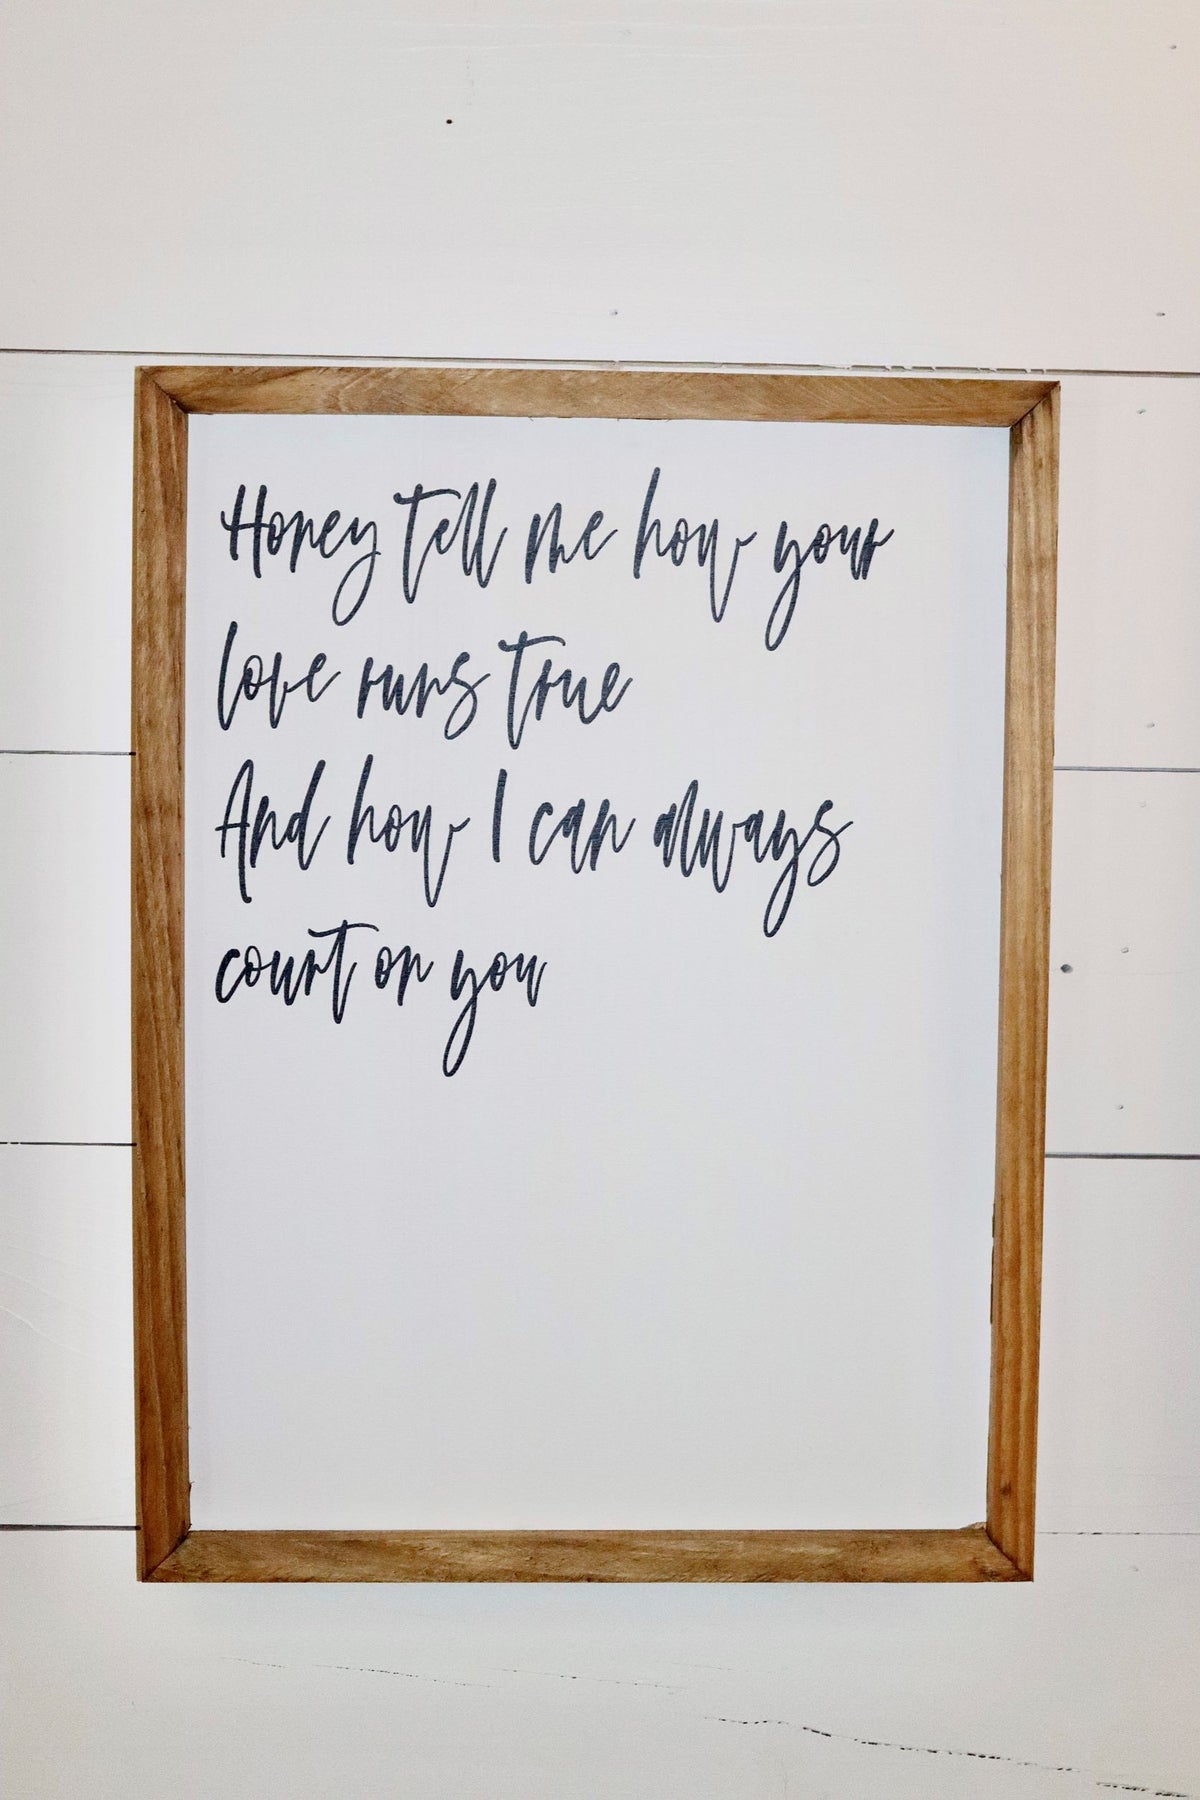 Honey tell me how your
love runs true
And how I can always
count on you